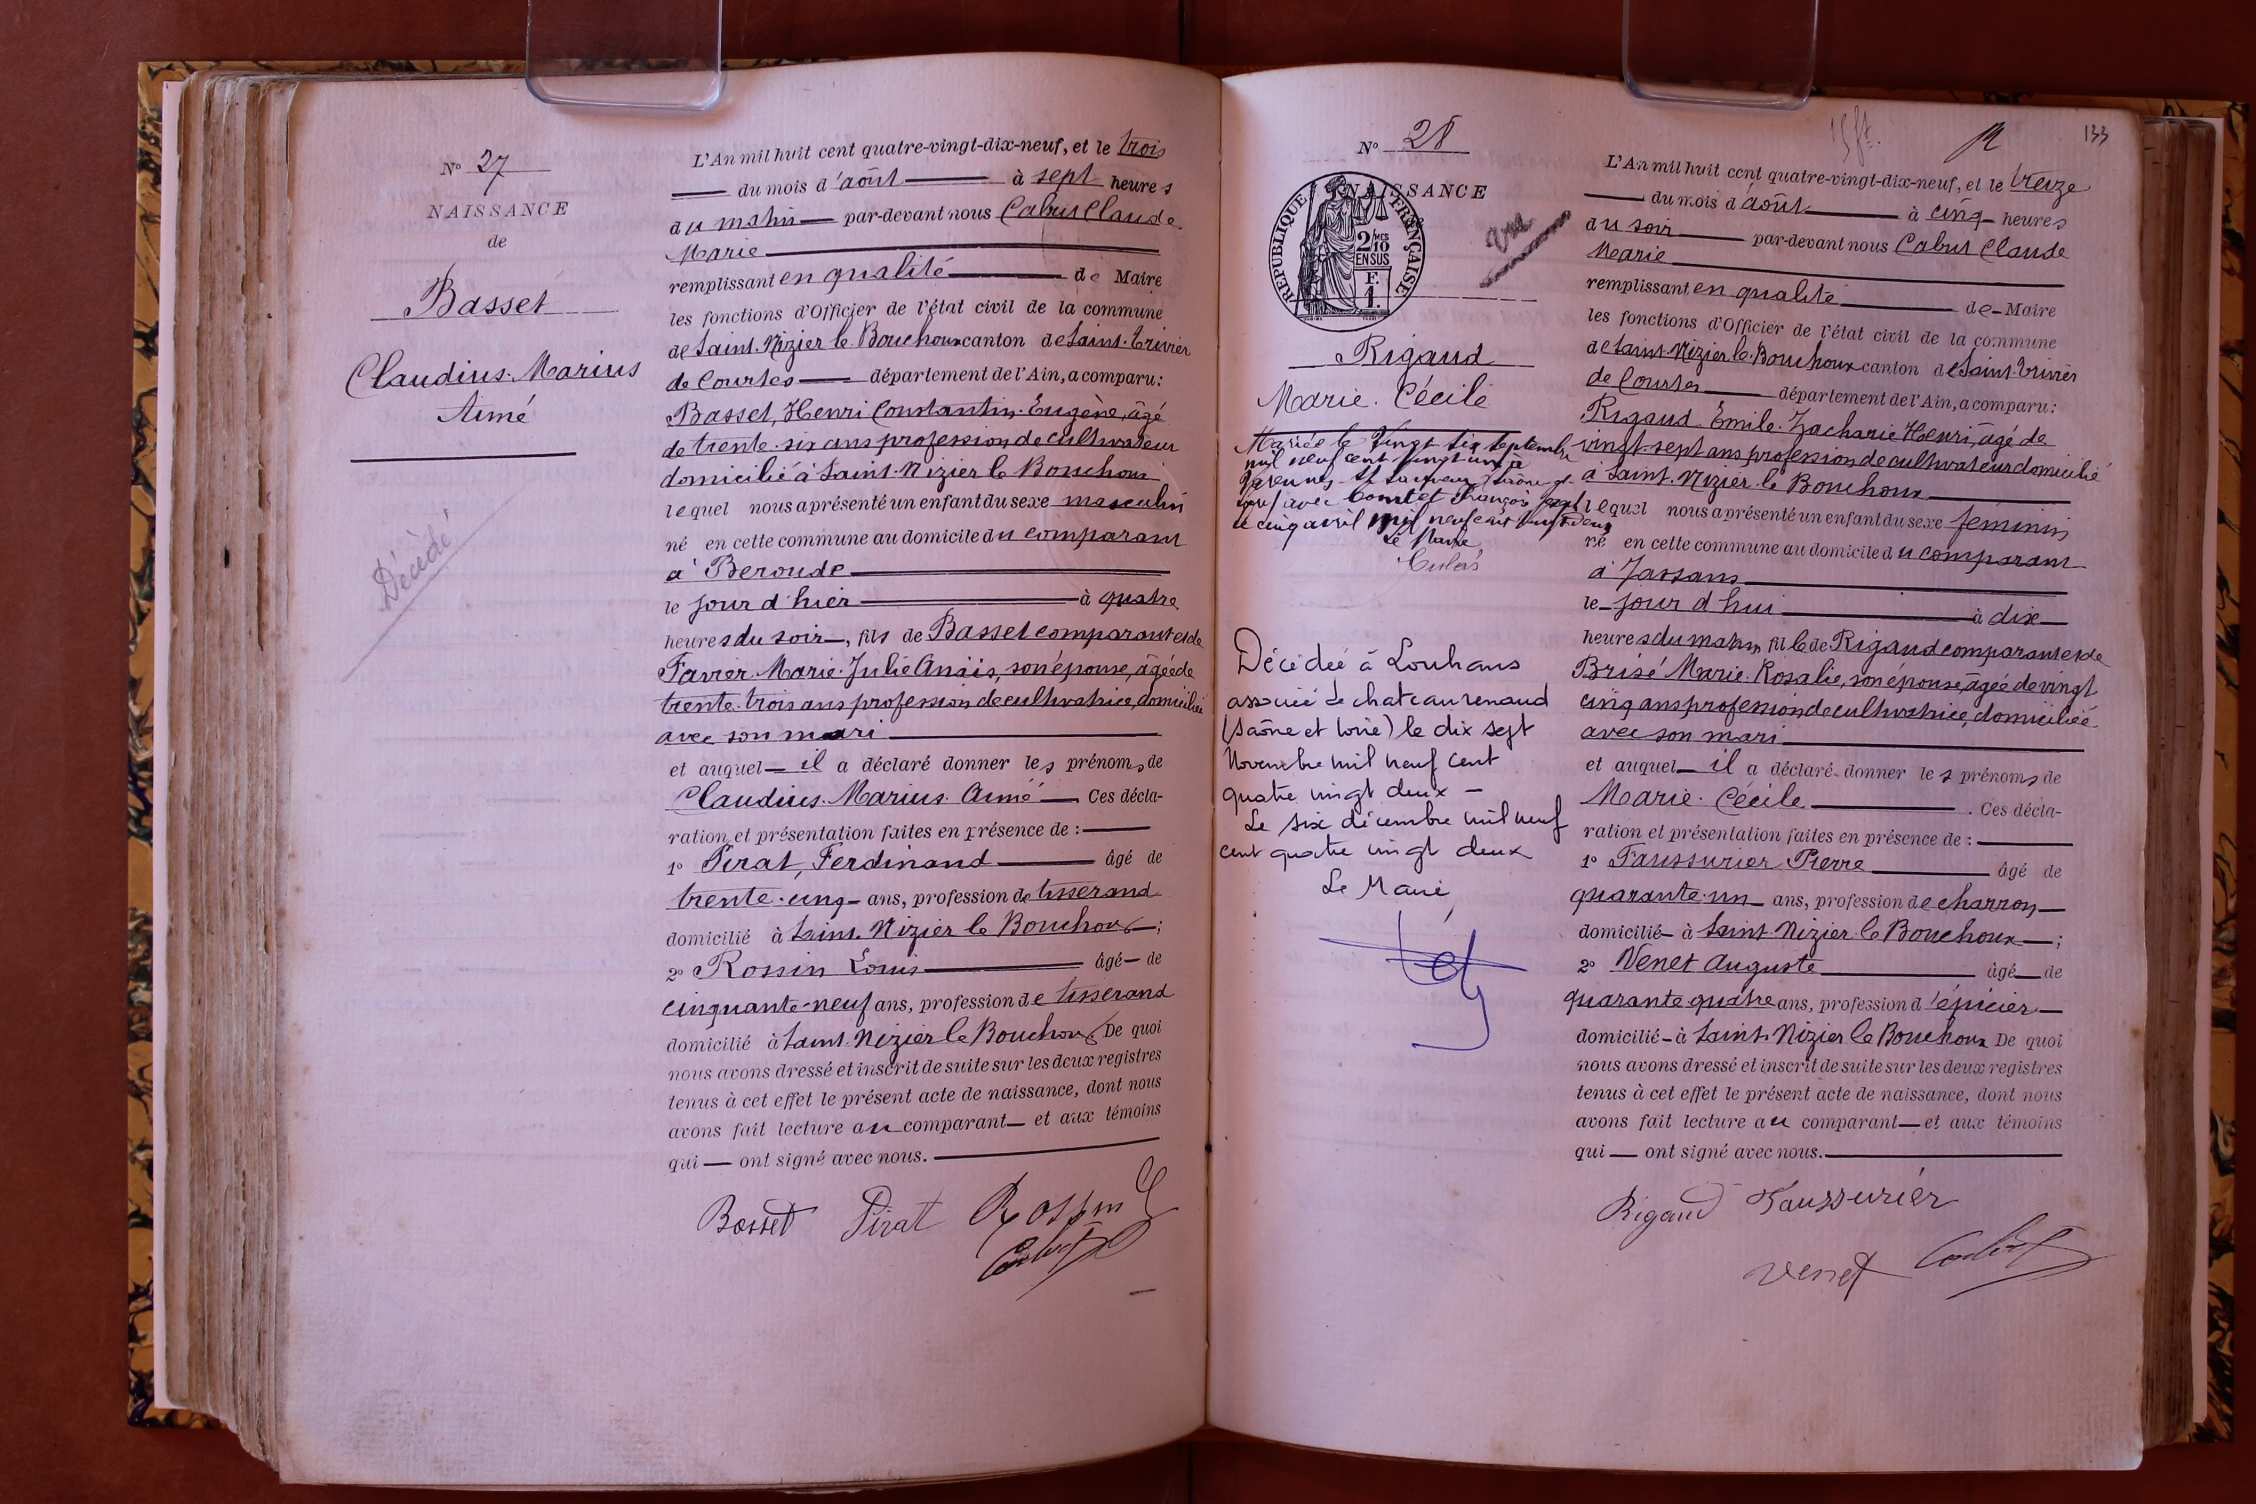 N° 27
NAISSANCE
de
Basset
Claudius. Marius
Aimé
Décédé
L'An mil huit cent quatre-vingt-dix-neuf, et le trois
du mois d'août à sept heures
du matin par-devant nous Cabut Claude
Marie
remplissant en qualité de Maire
les fonctions d'Officier de l'état civil de la commune
de Saint. Nizier le Bouchoux canton de Saint. Trivier
de Courtes département de l'Ain, a comparu:
Basset, Henri Constantin. Eugène, âgé
de trente. six ans profession de cultivateur
domicilié à Saint. Nizier le Bouchoux
lequel nous a présenté un enfant du sexe masculin
né en cette commune au domicile du comparant
à Beroude
le jour d'hier à quatre
heures du soir, fils de Basset comparant et de
Favier. Marie. Julie Anaïs, son épouse, âgée de
trente. trois ans profession de cultivatrice, domiciliée
avec son mari
et auquel il a déclaré donner les prénoms de
Claudius. Marius. Aimé Ces décla-
ration et présentation faites en présence de :
1° Pirat, Ferdinand âgé de
trente. cinq ans, profession de tisserand
domicilié à Saint. Nizier le Bouchoux ;
2° Rossin Louis âgé de
cinquante-neuf ans, profession de tisserand
domicilié à Saint. Nizier le Bouchoux De quoi
nous avons dressé et inscrit de suite sur les deux registres
tenus à cet effet le présent acte de naissance, dont nous
avons fait lecture au comparant et aux témoins
qui ont signé avec nous.
Basset Pirat Rossin
Cabut
N° 28
NAISSANCE
RÉPUBLIQUE FRANÇAISE
2/10
MES
EN SUS
F.
1.
vu
Rigaud
Marie. Cécile
Mariée le vingt six septembre
mil neuf cent vingt un à
St Sauveur Saône et
avec Comtet François
le cinq avril mil neuf cent vingt deux
Le Maire
Décédée à Louhans
associée de chateaurenaud
(Saône et Loire) le dix sept
Novembre mil neuf cent
quatre vingt deux —
Le six décembre mil neuf
cent quatre vingt deux
Le Maire
133
L'An mil huit cent quatre-vingt-dix-neuf, et le treize
du mois d'août à cinq heures
du soir par-devant nous Cabut Claude
Marie
remplissant en qualité de Maire
les fonctions d'Officier de l'état civil de la commune
de Saint. Nizier le Bouchoux canton de Saint. Trivier
de Courtes département de l'Ain, a comparu:
Rigaud. Emile. Zacharie Henri, âgé de
vingt. sept ans profession de cultivateur domicilié
à Saint. Nizier. le Bouchoux
lequel nous a présenté un enfant du sexe féminin
né en cette commune au domicile du comparant
à Jassans
le jour d'hui à dix
heures du matin fille de Rigaud comparant et de
Brisé Marie. Rosalie, son épouse, âgée de vingt
cinq ans profession de cultivatrice, domiciliée
avec son mari
et auquel il a déclaré donner les prénoms de
Marie. Cécile . Ces décla-
ration et présentation faites en présence de :
1° Faussurier Pierre âgé de
quarante. un ans, profession de charron
domicilié à Saint. Nizier le Bouchoux ;
2° Venet Auguste âgé de
quarante quatre ans, profession d'épicier
domicilié à Saint. Nizier le Bouchoux De quoi
nous avons dressé et inscrit de suite sur les deux registres
tenus à cet effet le présent acte de naissance, dont nous
avons fait lecture au comparant et aux témoins
qui ont signé avec nous.
Rigaud Faussurier
Venet Cabut